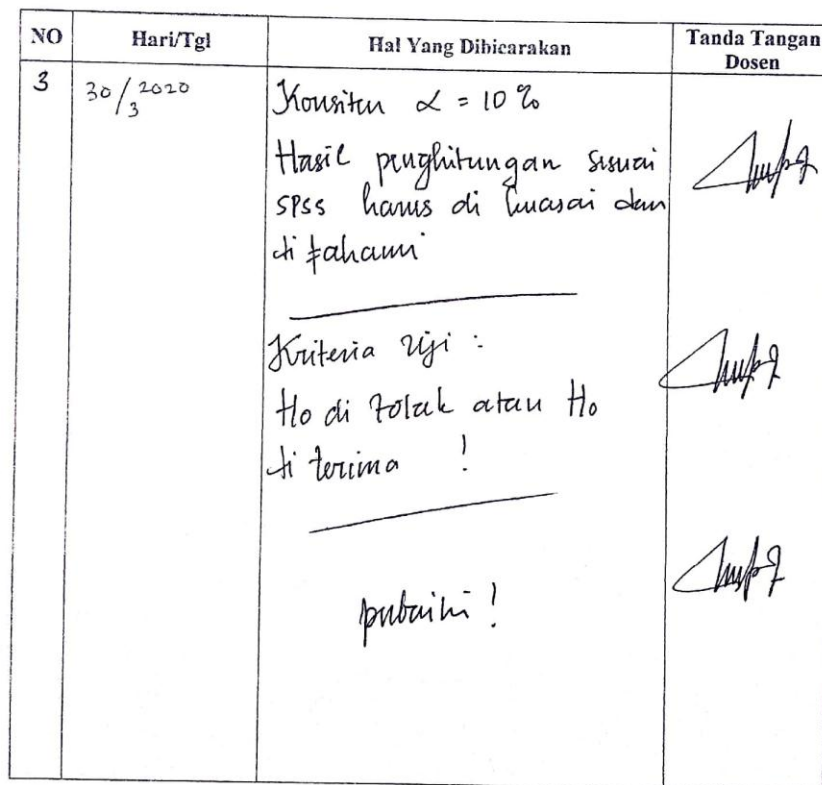 NO Hari/Tgl Hal Yang Dibicarakan Tanda Tangan Dosen
3 30/3 2020 Konsiten α = 10%
Hasil penghitungan sesuai
SPSS harus di kuasai dan
di fahami
Kriteria Uji :
Ho di tolak atau Ho
di terima !
perbaiki !